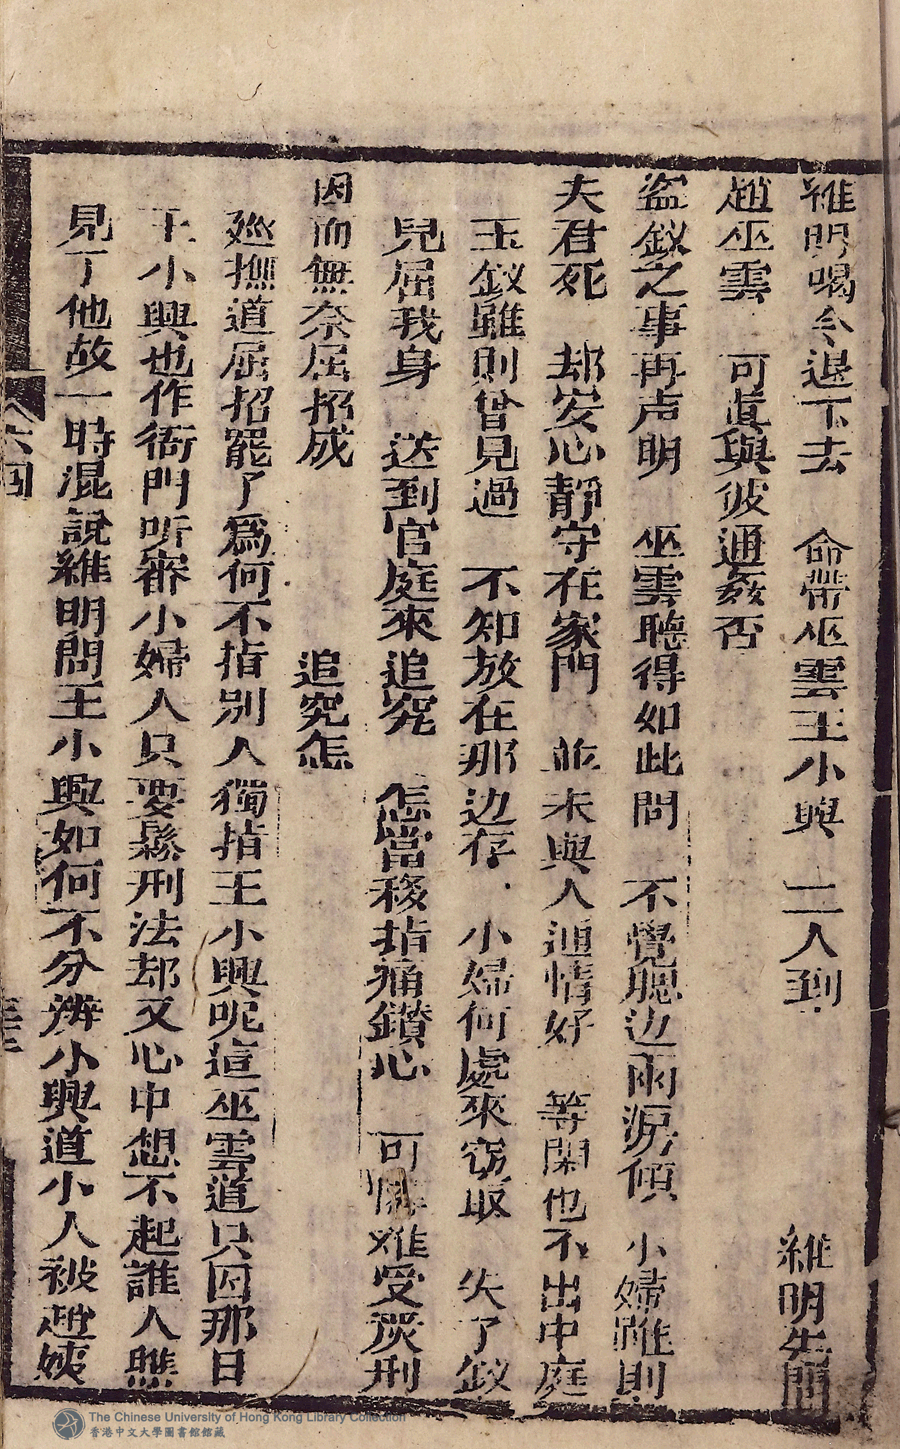 維明喝令退下去　命帶巫雲王小興　二人到　維明先問
趙巫雲　可真與彼通姦否
盜釵之事再声明　巫雲聽得如此問　不覺腮边雨淚傾　小婦雖則
夫君死　却安心靜守在家門　並未與人通情好　等閑也不出中庭
玉釵雖則曾見過　不知放在那边存　小婦何處來窃取　失了釵
兒屈我身　送到官庭來追究　怎當移指痛鑽心　可憐难受炭刑
因而無奈屈招成　追究怎
廵撫道屈招罷了爲何不指別人獨指王小興呢這巫雲道只因那日
王小興也作衙門听審小婦人只要鬆刑法却又心中想不起誰人瞧
見了他故一時混說維明問王小興如何不分辨小興道小人被趙姨
六回
The Chinese University of Hong Kong Library Collection
香港中文大學圖書館館藏